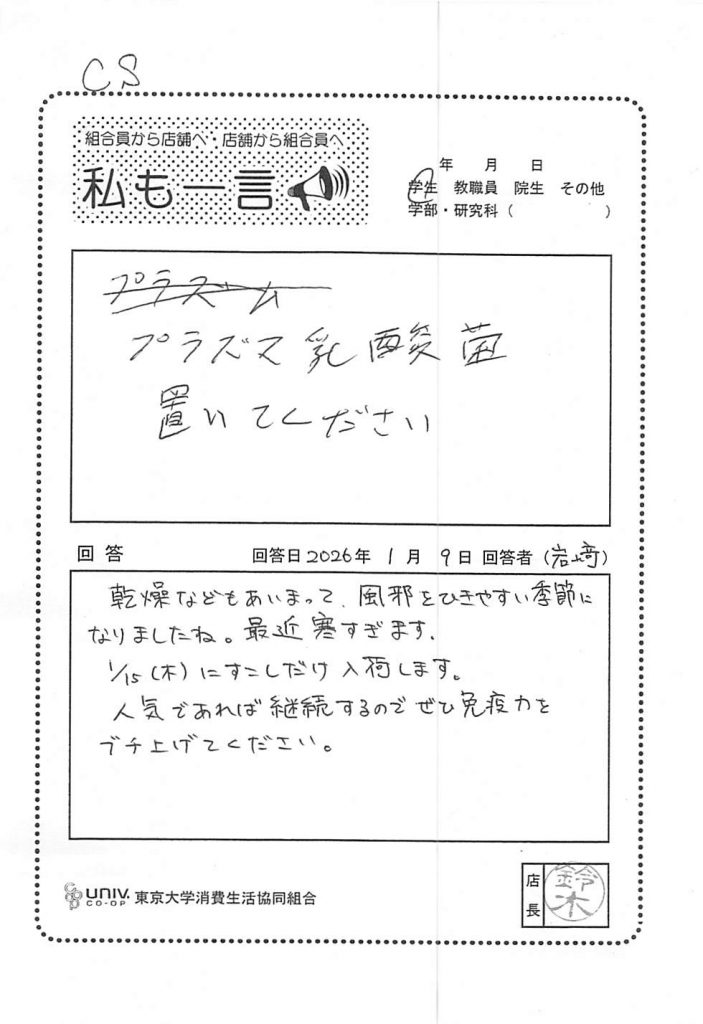 CS
組合員から店舗へ・店舗から組合員へ
私も一言
年 月 日
学生 教職員 院生 その他
学部・研究科( )
プラズーム
プラズマ乳酸菌
置いてください
回答 回答日2026年 1月 9日 回答者(岩﨑)
乾燥などもあいまって、風邪をひきやすい季節に
なりましたね。最近寒すぎます。
1/15(木)にすこしだけ入荷します。
人気であれば継続するのでぜひ免疫力を
ブチ上げてください。
店長 鈴木
UNIV. CO-OP 東京大学消費生活協同組合